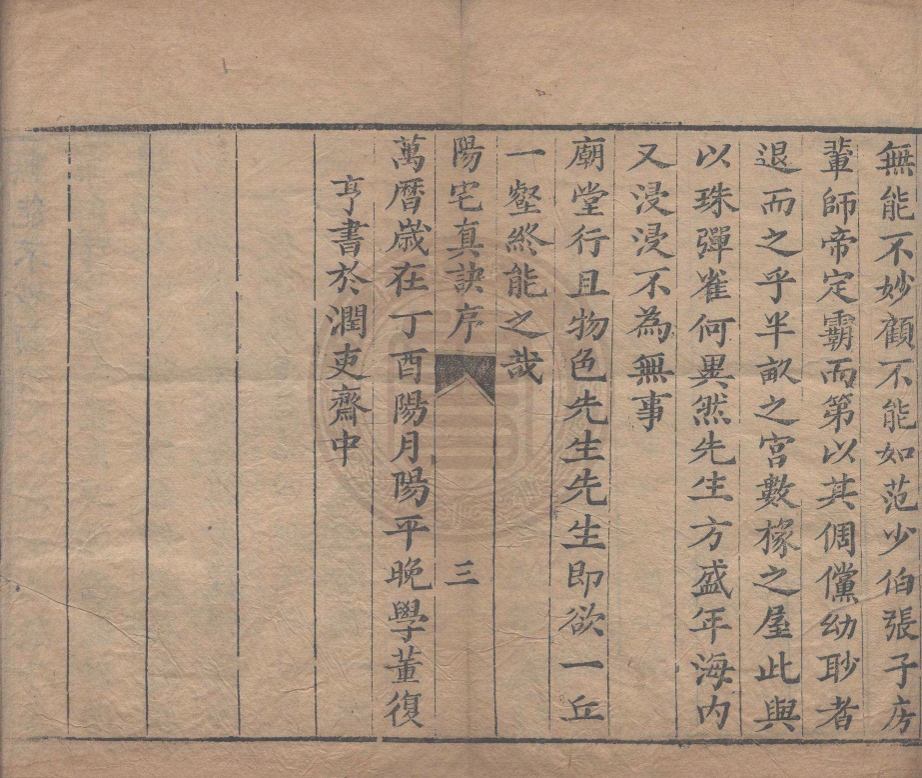 無能不妙顧不能如范少伯張子房
輩師帝定霸而第以其倜儻幼眇者
退而之乎半畝之宮數椽之屋此與
以珠彈雀何異然先生方盛年海内
又浸浸不為無事
廟堂行且物色先生先生即欲一丘
一壑終能之哉
陽宅真訣序 三
萬曆歲在丁酉陽月陽平晚學董復
亨書於潤吏齋中